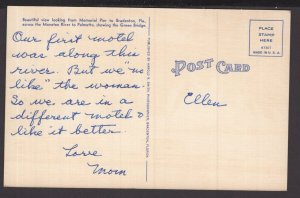 Beautiful view looking from Memorial Pier to Bradenton, Fla.
across the Manatee River to Palmetto, showing the Green Bridge.
Our first motel
was along this
river. But we "no
like" the woman.
So we are in a
different motel &
like it better.
Love
Mom
POST CARD
PLACE
STAMP
HERE
MADE IN U.S.A.
Ellen